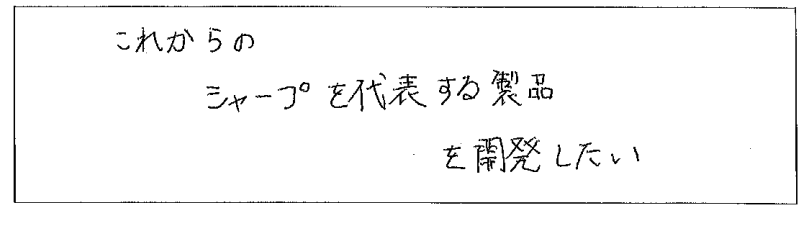 これからの
シャープを代表する製品
を開発したい